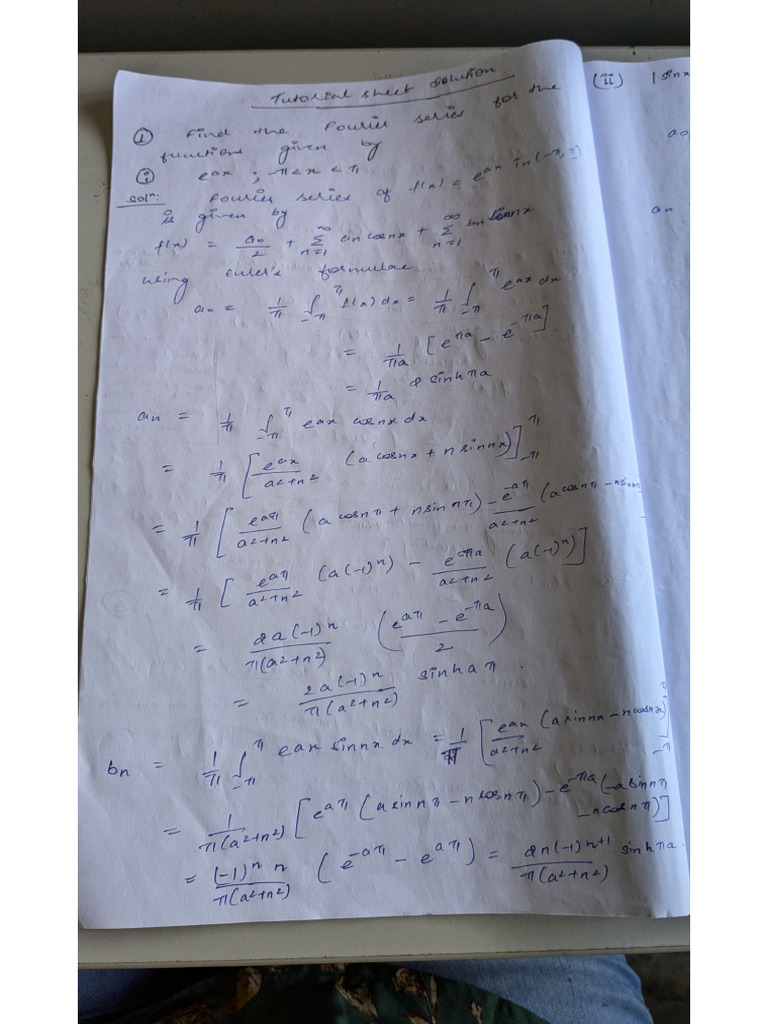 Tutorial sheet solution
① Find the Fourier series for the
functions given by
ⓘ e^{ax} ; -π<x<π
Solⁿ: Fourier series of f(x) = e^{ax} in (-π, π)
is given by
f(x) = a₀/2 + Σ_{n=1}^{∞} an cosnx + Σ_{n=1}^{∞} bn sinnx
using Euler's formulae
a₀ = 1/π ∫_{-π}^{π} f(x) dx = 1/π ∫_{-π}^{π} e^{ax} dx
= 1/πa [e^{πa} - e^{-πa}]
= 1/πa 2 sinhπa
an = 1/π ∫_{-π}^{π} e^{ax} cosnx dx
= 1/π [e^{ax}/(a²+n²) (a cosnx + n sinnx)]_{-π}^{π}
= 1/π [e^{aπ}/(a²+n²) (a cosnπ + n sinnπ) - e^{-aπ}/(a²+n²) (a cosnπ - n sinnπ)
= 1/π [e^{aπ}/(a²+n²) (a(-1)ⁿ) - e^{-πa}/(a²+n²) (a(-1)ⁿ)]
= 2a(-1)ⁿ/π(a²+n²) ((e^{aπ} - e^{-πa})/2)
= 2a(-1)ⁿ/π(a²+n²) sinhaπ.
bn = 1/π ∫_{-π}^{π} e^{ax} sinnx dx = 1/π [e^{ax}/(a²+n²) (a sinnx - n cosnx)]_{-π}^{π}
= 1/π(a²+n²) [e^{aπ} (a sinnπ - n cosnπ) - e^{-πa} (-a sinnπ
- n cosnπ)]
= (-1)ⁿ n/π(a²+n²) (e^{-aπ} - e^{aπ}) = 2n(-1)^{n+1}/π(a²+n²) sinhπa.
(ii) |sinx
a₀
an